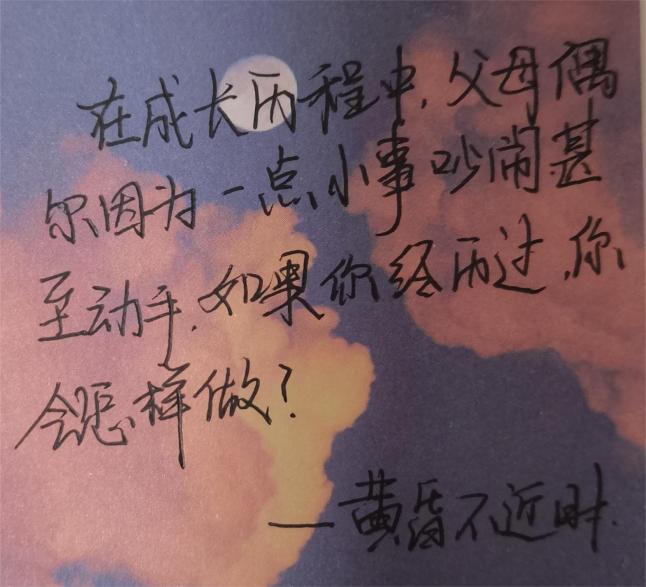 在成长历程中,父母偶
尔因为一点小事吵闹甚
至动手,如果你经历过,你
会怎样做?
—黄昏不近时.